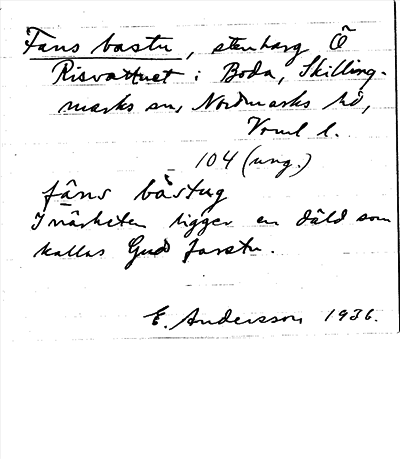 Fans bastu, stenharg Ö
Risvattnet i Boda, Skilling-
marks sn, Nordmarks hd,
Vrml l.
104 (ung.)
fans bästug
I närheten ligger en däld som
kallas Guds farstu.
E. Andersson 1936.